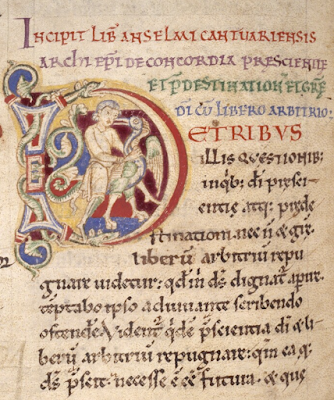 INCIPIT LIB ANSELMI CANTUARIENSIS
ARCHI EPI DE CONCORDIA PRESCIENTIE
ET PDESTINATIONIS ET GRE
DI CU LIBERO ARBITRIO:
DE TRIBUS
illis questionib;
inqb; di presci
entie atq; prede
stinationi nec n & gre
liberu arbitriu repu
gnare videtur: qd in ds dignat aperire
teptabo ipso adiuvante scribendo
ostendere. Videnť qde pscientia di & li
beru arbitriu repugnare: qm ea q;
ds pscit. necesse e e e futura. & que